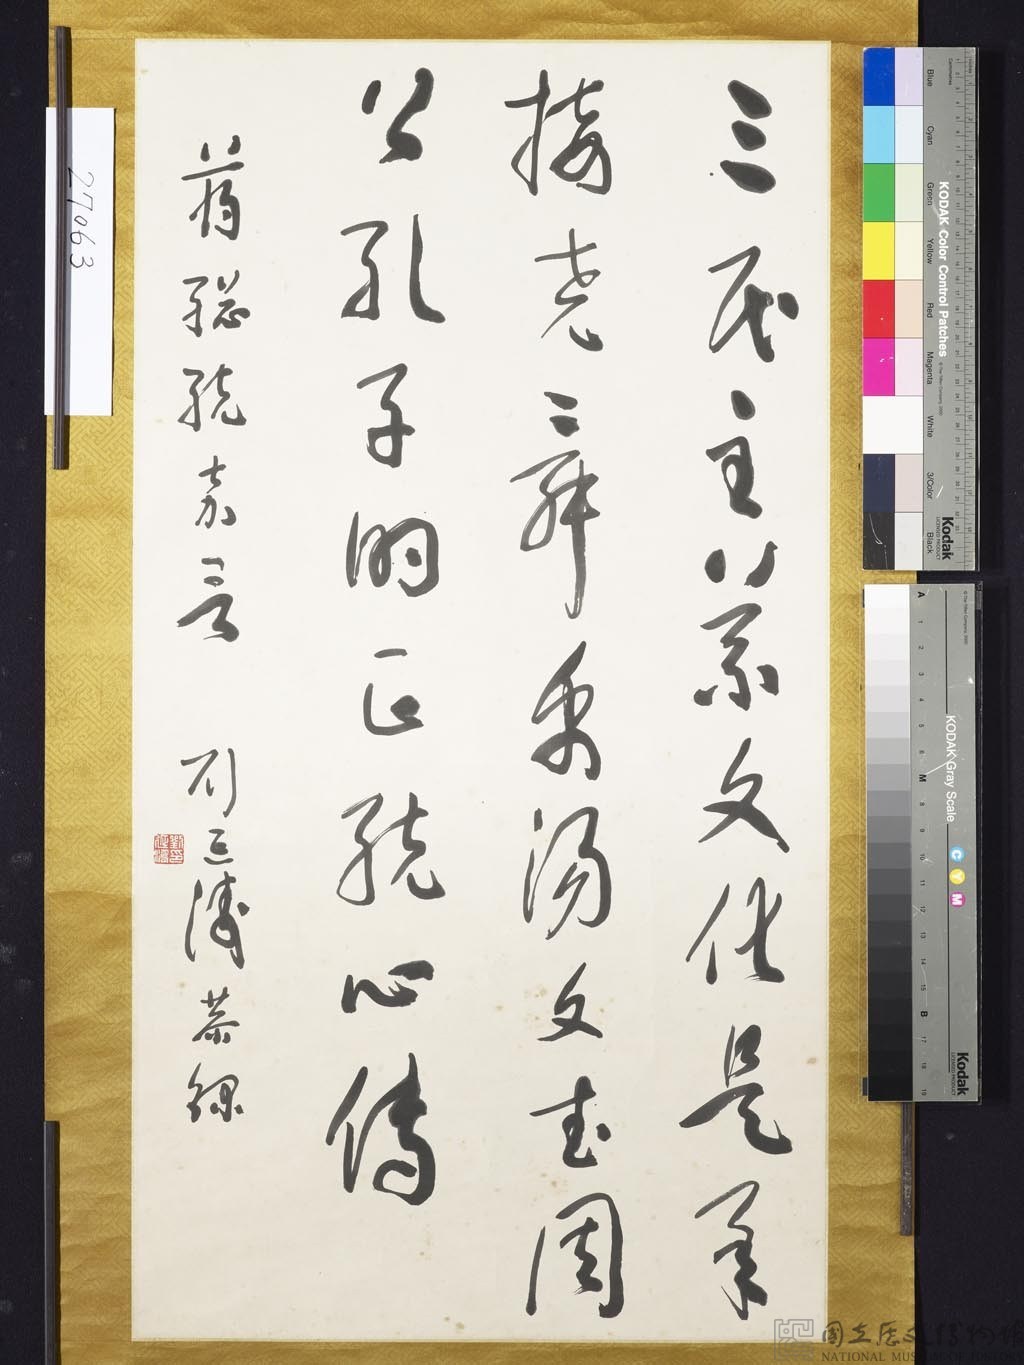 三民主義文化是承
接堯舜禹湯文武周
公孔子的正統心傳
蔣總統嘉言
劉延濤恭錄
27063
KODAK Color Control Patches
Blue
Cyan
Green
Yellow
Red
Magenta
White
3/Color
Black
Kodak
KODAK Gray Scale
C
Y
M
Kodak
A 1 2 3 4 5 6 M 8 9 10 11 12 13 14 15 B 17 18 19
國立歷史博物館
NATIONAL MUSEUM OF